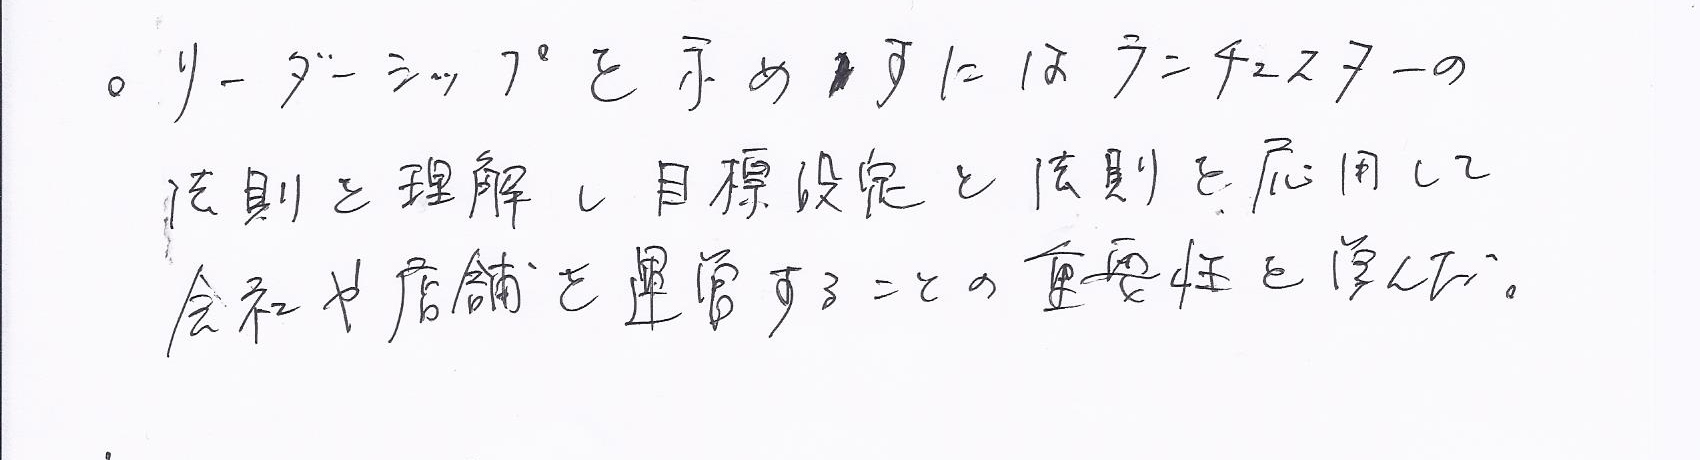 ○ リーダーシップを示めすにはランチェスターの
法則を理解し目標設定と法則を応用して
会社や店舗を運営することの重要性を学んだ。